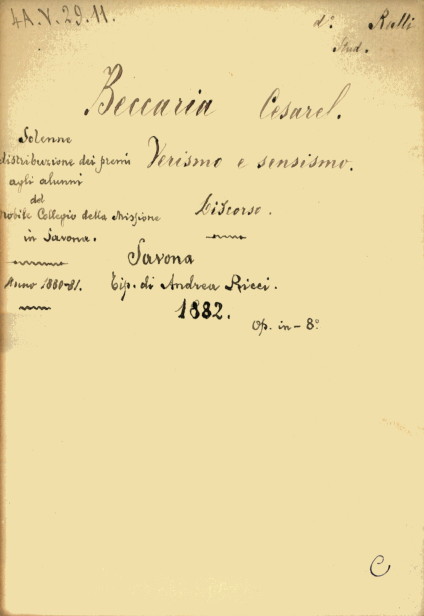 4A.V.29.11.
dº. Ralli
Stud.
Beccaria Cesarel.
Solenne
distribuzione dei premi
agli alunni
del
nobile Collegio della Missione
in Savona.
Anno 1880-81.
Verismo e sensismo.
Discorso.
Savona
Tip. di Andrea Ricci.
1882.
Op. in-8º
C